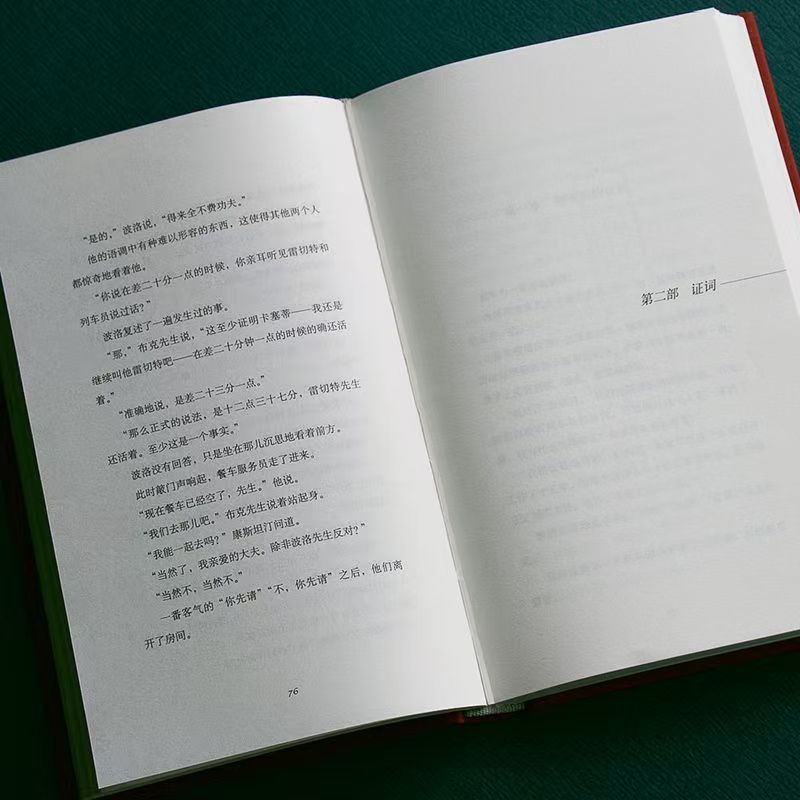 “是的，”波洛说，“得来全不费功夫。”
他的语调中有种难以形容的东西，这使得其他两个人
都惊奇地看着他。
“你说在差二十分一点的时候，你亲耳听见雷切特和
列车员说过话？”
波洛复述了一遍发生过的事。
“那，”布克先生说，“这至少证明卡塞蒂——我还是
继续叫他雷切特吧——在差二十分钟一点的时候的确还活
着。”
“准确地说，是差二十三分一点。”
“那么正式的说法，是十二点三十七分，雷切特先生
还活着。至少这是一个事实。”
波洛没有回答，只是坐在那儿沉思地看着前方。
此时敲门声响起，餐车服务员走了进来。
“现在餐车已经空了，先生。”他说。
“我们去那儿吧。”布克先生说着站起身。
“我能一起去吗？”康斯坦汀问道。
“当然了，我亲爱的大夫。除非波洛先生反对？”
“当然不，当然不。”
一番客气的“你先请”“不，你先请”之后，他们离
开了房间。
76
第二部 证词